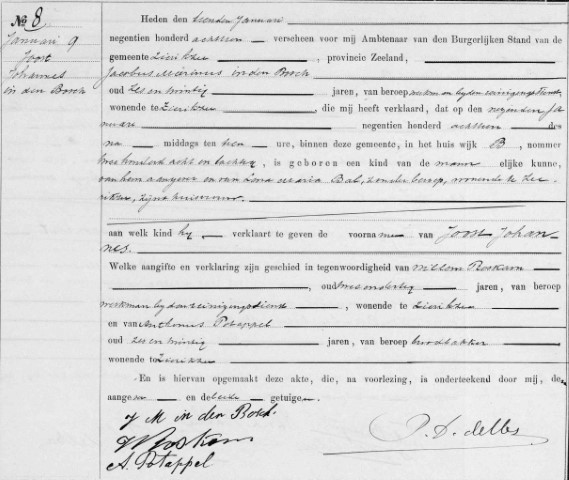 No. 8
Januari 9
Joost
Johannes
in den Bosch
Heden den tienden Januari
negentien honderd achttien verscheen voor mij Ambtenaar van den Burgerlijken Stand van de
gemeente Zierikzee, provincie Zeeland,
Jacobus Marinus in den Bosch
oud zes en twintig jaren, van beroep werkman bij den reinigingsdienst,
wonende te Zierikzee, die mij heeft verklaard, dat op den negenden Ja-
nuari negentien honderd achttien des
na middags ten tien ure, binnen deze gemeente, in het huis wijk B, nommer
twee honderd acht en tachtig, is geboren een kind van de mannelijke kunne,
van hem aangever en van Maria Bal, zonder beroep, wonende te Zie-
rikzee, zijne huisvrouw
aan welk kind hij verklaart te geven de voorna men van Joost Johan-
nes.
Welke aangifte en verklaring zijn geschied in tegenwoordigheid van Willem Roskam
, oud twee en dertig jaren, van beroep
werkman bij den reinigingsdienst, wonende te Zierikzee
en van Anthonus Potappel
oud zes en twintig jaren, van beroep broodbakker
wonende te Zierikzee
En is hiervan opgemaakt deze akte, die, na voorlezing, is onderteekend door mij, de
aangever en de beide getuigen.
J M in den Bosch.
W Roskam
A. Potappel